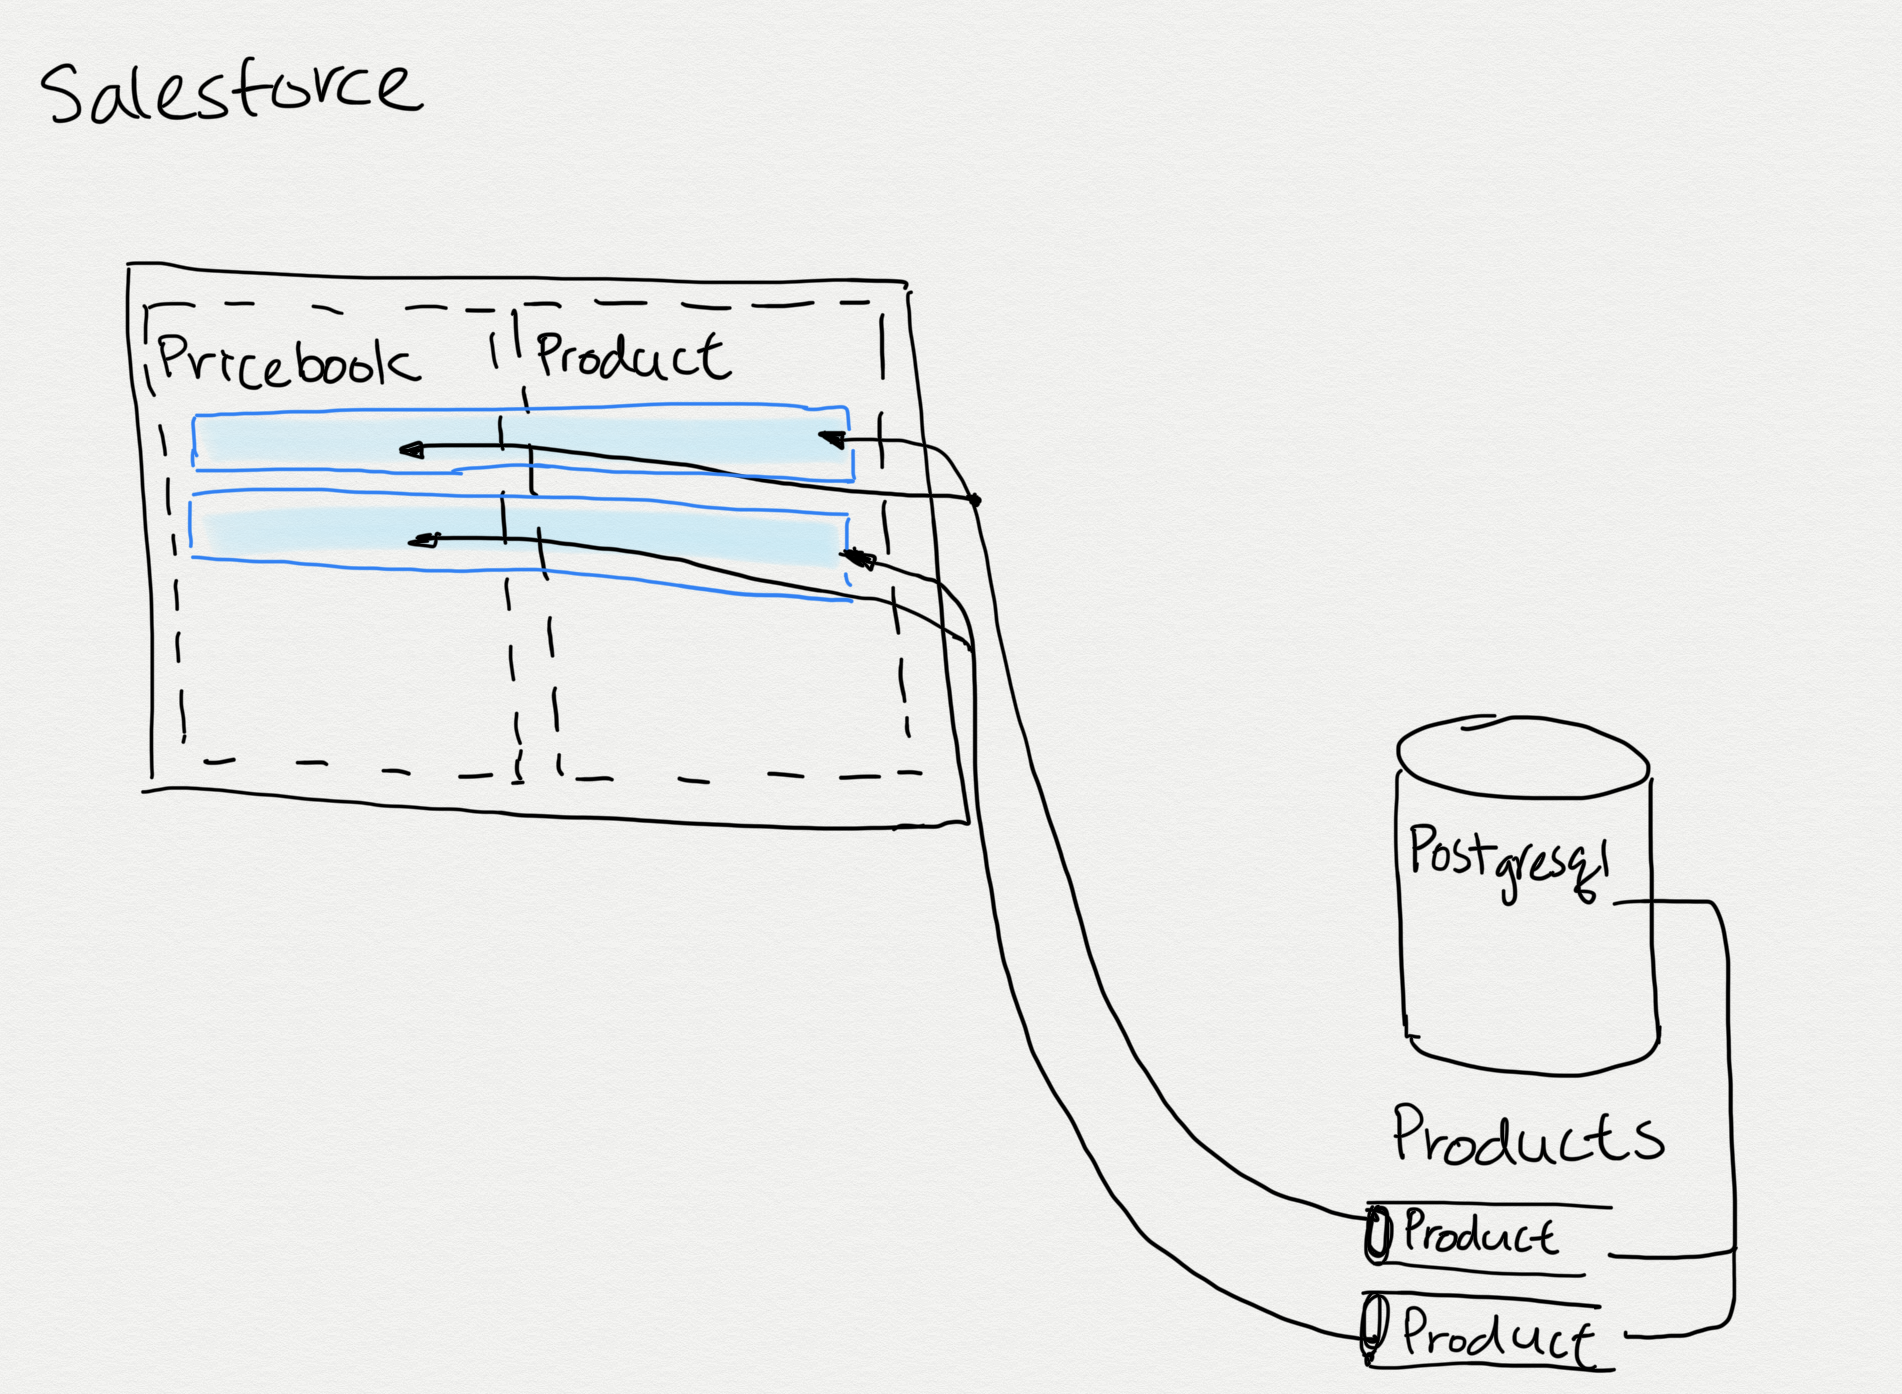 Salesforce
Pricebook
Product
Postgresql
Products
Product
Product